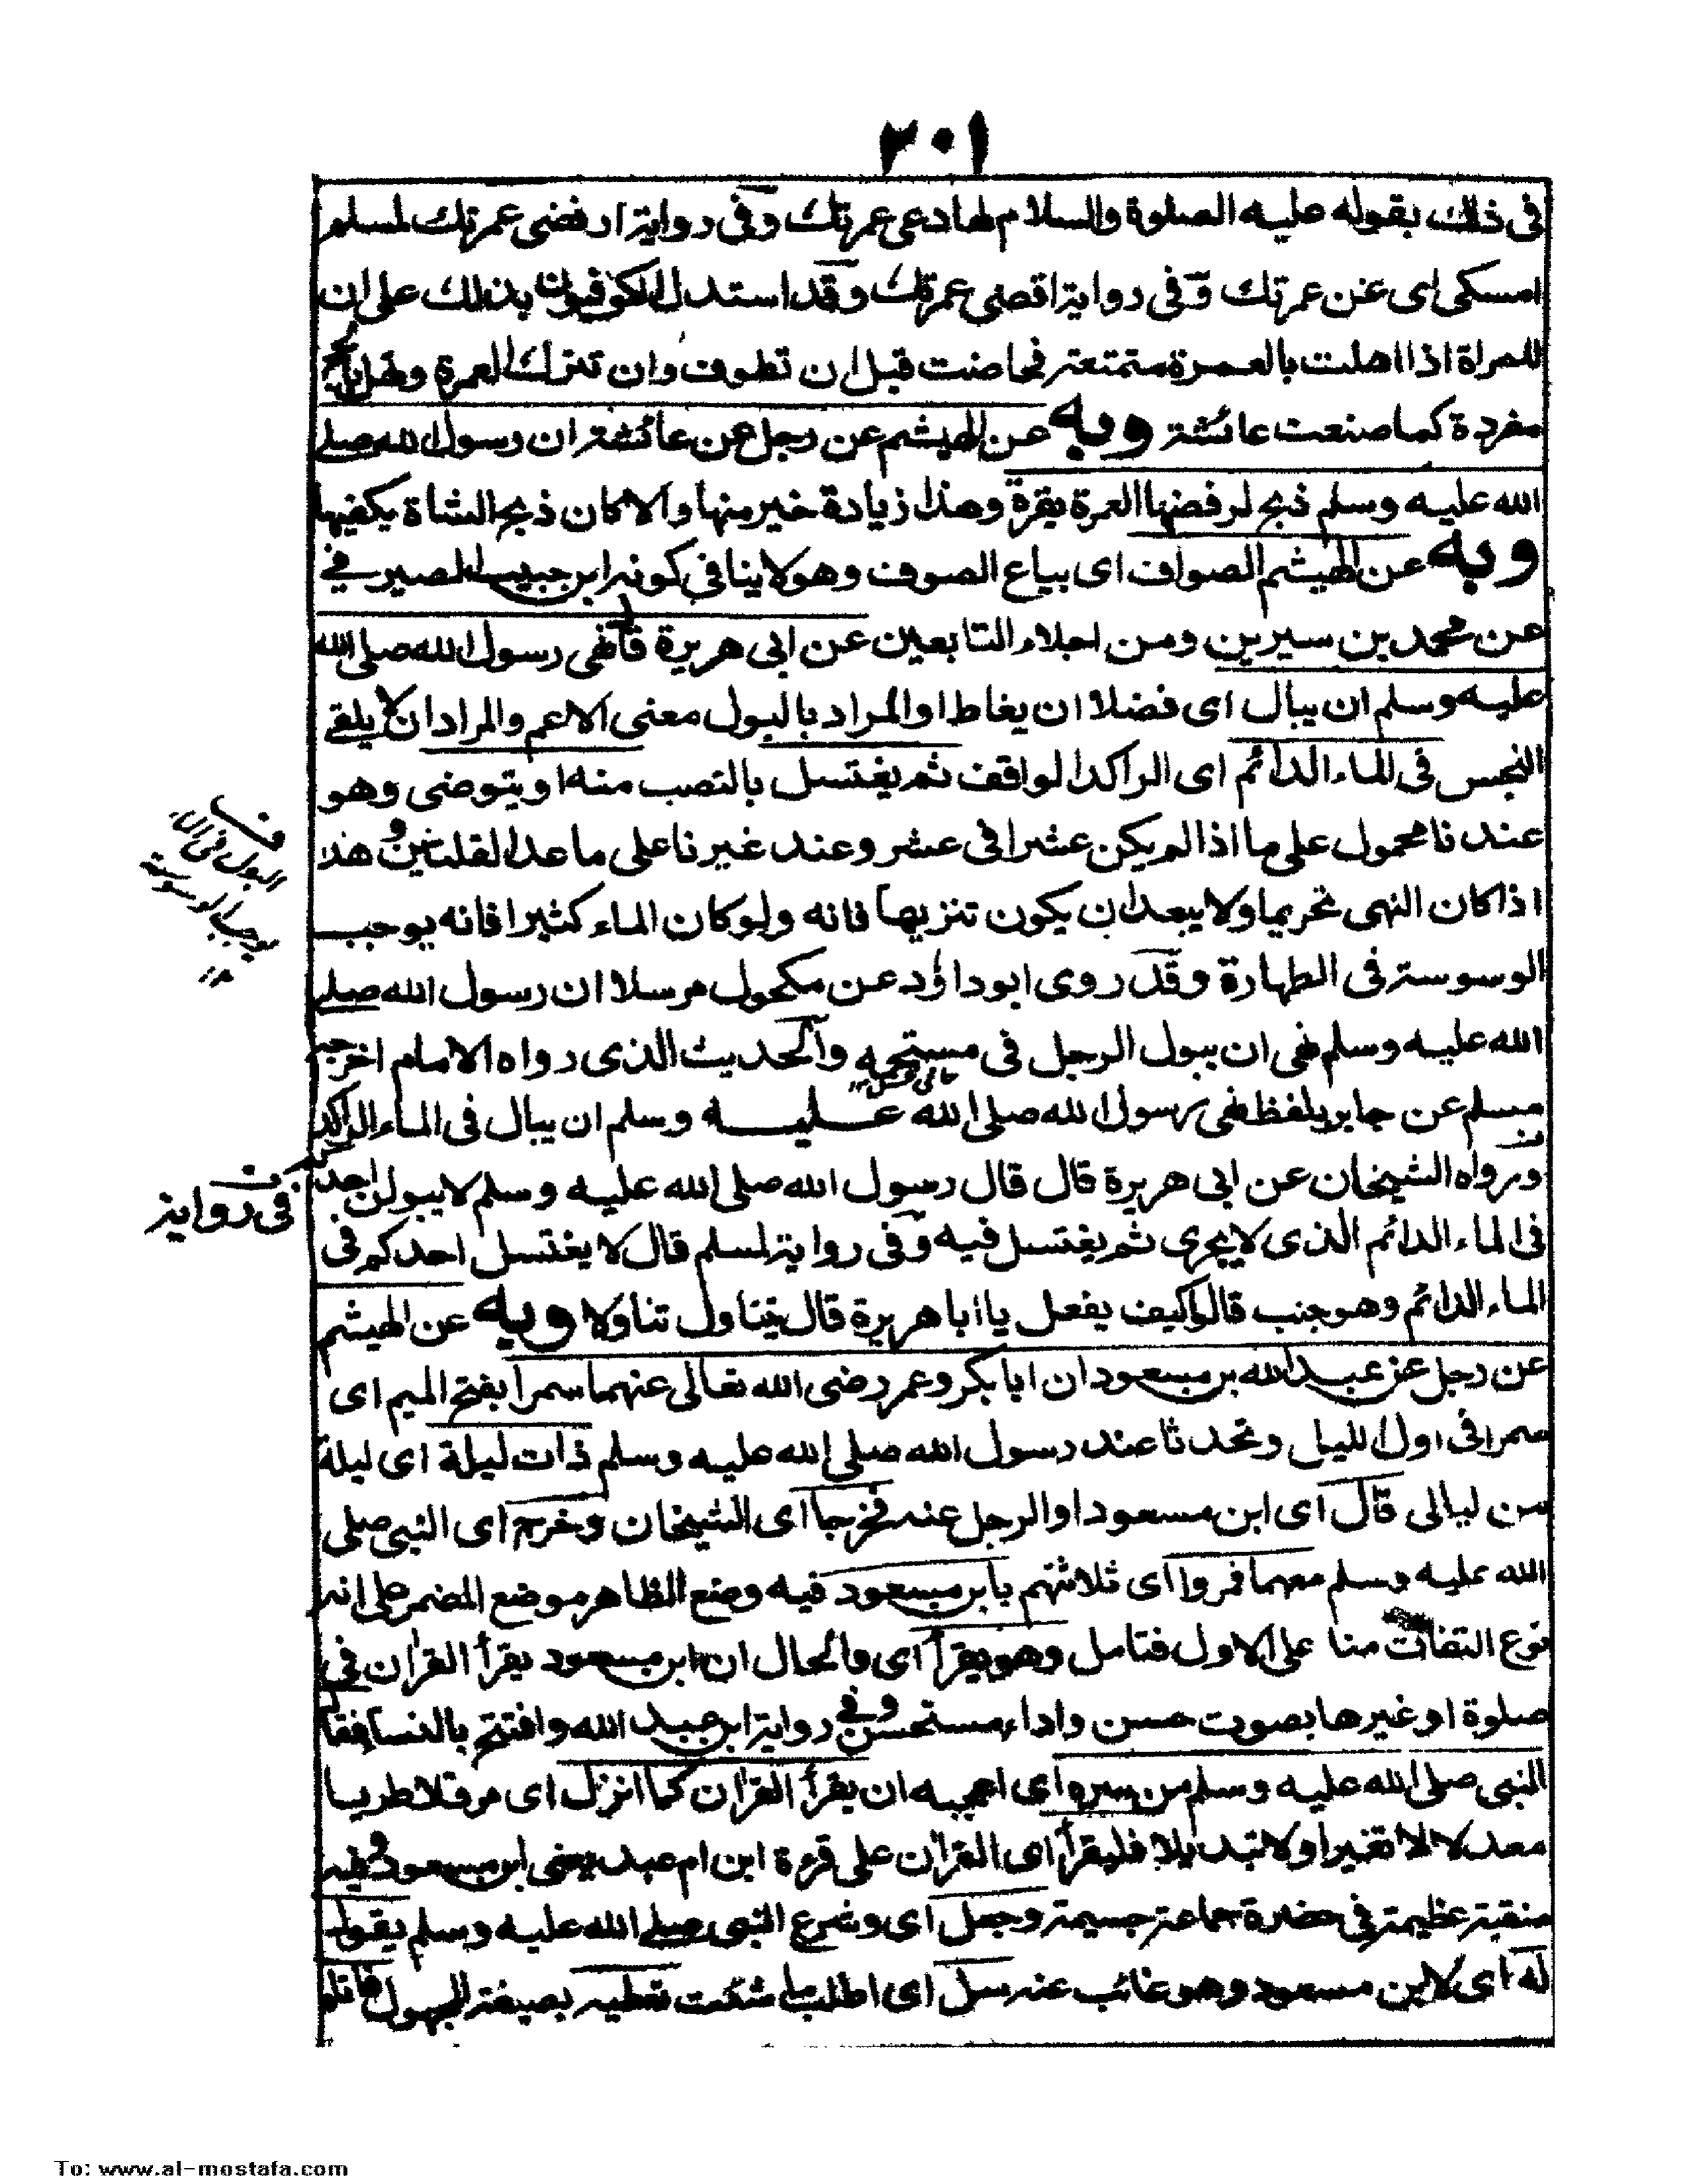 ٢٠١
فى ذلك بقوله عليه الصلوة والسلام لها دعى عمرتك وفى رواية ارفضى عمرتك لمسلم
امسكى اى عن عمرتك وفى رواية اقضى عمرتك وقد استدل الكوفيون بذلك على ان
للمراة اذا اهلت بالعمرة متمتعة فحاضت قبل ان تطوف وان تترك العمرة وتهل بالحج
مفردة كما صنعت عائشة وبه عن الهيثم عن رجل عن عائشة ان رسول الله صلى
الله عليه وسلم ذبح لرفضها العمرة بقرة وهذا زيادة خير منها والا كان ذبح الشاة يكفيها
وبه عن الهيثم الصواف اى بياع الصوف وهو لا ينافى كونه ابن حبيب الصيرفى
عن محمد بن سيرين ومن اجلاء التابعين عن ابى هريرة قال نهى رسول الله صلى الله
عليه وسلم ان يبال اى فضلا ان يغاط او المراد بالبول معنى الاعم والمراد ان لا يلقى
النجس فى الماء الدائم اى الراكد الواقف ثم يغتسل بالنصب منه او يتوضى وهو
عندنا محمول على ما اذا لم يكن عشرا فى عشر وعند غيرنا على ما عدا القلتين وهذا
اذا كان النهى تحريما ولا يبعد ان يكون تنزيها فانه ولو كان الماء كثيرا فانه يوجب
الوسوسة فى الطهارة وقد روى ابو داؤد عن مكحول مرسلا ان رسول الله صلى
الله عليه وسلم نهى ان يبول الرجل فى مستحمه والحديث الذى رواه الامام اخرجه
مسلم عن جابر بلفظ نهى رسول الله صلى الله عليه وسلم ان يبال فى الماء الراكد
ورواه الشيخان عن ابى هريرة قال قال رسول الله صلى الله عليه وسلم لا يبولن احدكم
فى الماء الدائم الذى لا يجرى ثم يغتسل فيه وفى رواية لمسلم قال لا يغتسل احدكم فى
الماء الدائم وهو جنب قالوا كيف يفعل يا ابا هريرة قال يتناول تناولا وبه عن الهيثم
عن رجل عن عبد الله بن مسعود ان ابا بكر وعمر رضى الله تعالى عنهما سمرا بفتح الميم اى
سمرا فى اول الليل وتحدثا عند رسول الله صلى الله عليه وسلم ذات ليلة اى ليلة
من ليالى قال اى ابن مسعود او الرجل عنه فخرجا اى الشيخان وخرج اى النبى صلى
الله عليه وسلم معهما فمروا اى ثلاثتهم بابن مسعود فيه وضع الظاهر موضع المضمر على انه
نوع التفات منا على الاول فتامل وهو يقرأ اى والحال ان ابن مسعود يقرأ القرآن فى
صلوة او غيرها بصوت حسن واداء مستحسن وفى رواية ابن عبد الله وافتتح بالنسا فقال
النبى صلى الله عليه وسلم من سره اى اعجبه ان يقرأ القرآن كما انزل اى مرتلا طريا
معدلا لا تغيرا ولا تبديلا فليقرأ اى القرآن على قرءة ابن ام عبد يعنى ابن مسعود وفيه
منقبة عظيمة فى حضرة جماعة جسيمة وجعل اى وشرع النبى صلى الله عليه وسلم يقول
له اى لابن مسعود وهو غائب عنه سل اى اطلب ما شئت تعطيه بصيغة المجهول فاتاه
ف
البول فى الماء
يوجب الوسوسة
١٢
فى رواية
To: www.al-mostafa.com